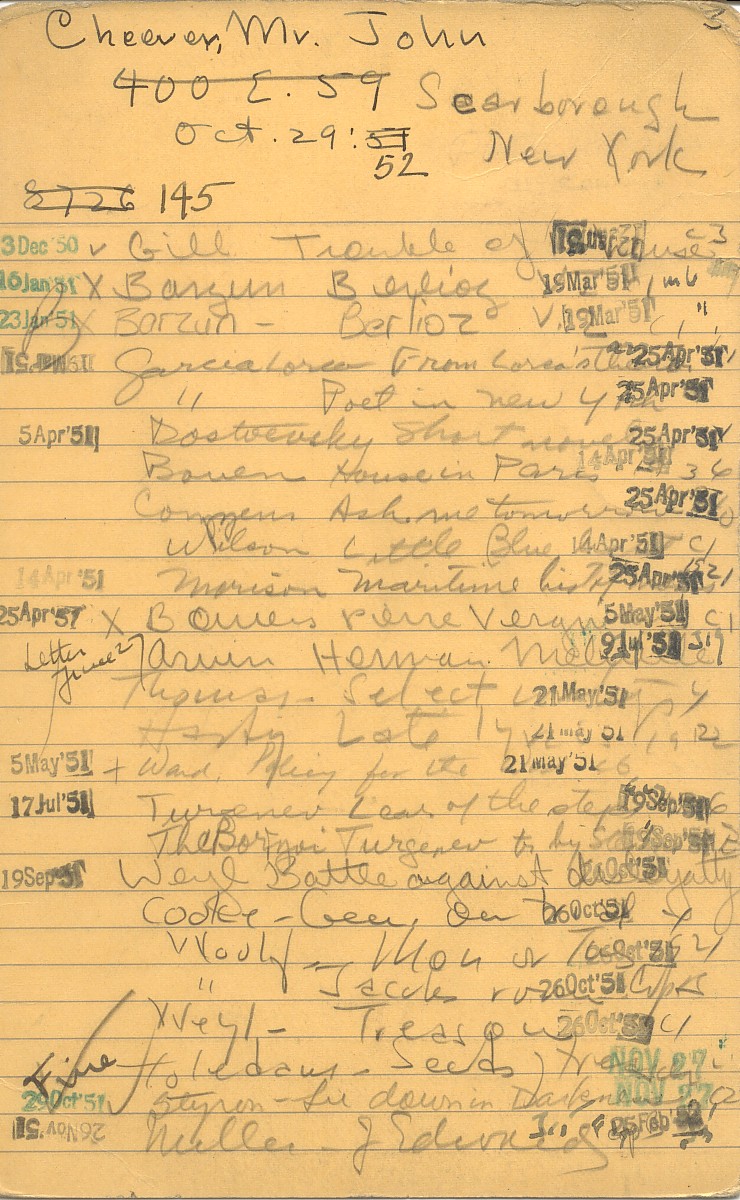 3
Cheever, Mr. John
400 E. 59 Scarborough
Oct. 29 '51 New York
52
8726 145
3 Dec '50 v Gill Trouble of c3
16 Jan '51 X Barzun Berlioz 19 Mar '51
23 Jan '51 X Barzun - Berlioz V. 19 Mar '51 c1 "
19 Mar '51 Garcia Lorca From Lorca's 25 Apr '51
" Poet in New York 25 Apr '51
5 Apr '51 Dostoevsky Short novels 25 Apr '51
Bowen House in Paris 14 Apr '51 36
Ask me tomorrow 25 Apr '51
Wilson Little Blue 14 Apr '51 c1
14 Apr '51 Morison Maritime history 25 Apr '51
25 Apr '51 X Bowers Pierre Vergni 5 May '51 c1
Letter June 27 Arvin Herman Melville 9 Jul '51
Thomas - Select 21 May '51
Late 21 May '51 1922
5 May '51 + Ward, Policy for the 21 May '51
17 Jul '51 Turgenev Lear of the steppes 19 Sep '51
The Borzoi Turgenev tr by 19 Sep '51
19 Sep '51 Weyl Battle against disloyalty Oct '51
Cooke - Gen. On 26 Oct '51
Woolf - 26 Oct '51
" Jacobs room 26 Oct '51
Weyl - Treason 26 Oct '51 c1
Fine Seeds NOV 27
29 Oct '51 Styron - Lie down in Darkness NOV 27
26 Nov '51 Miller - J Edwards 25 Feb